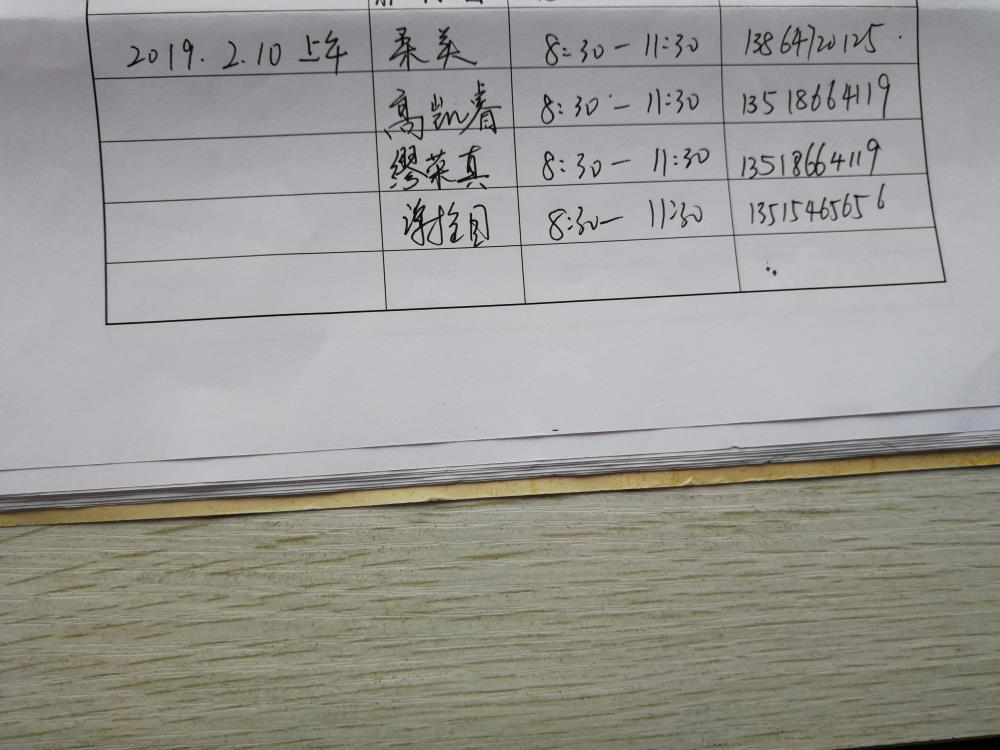 2019.2.10 上午 柔美 8:30-11:30 13864720125.
高凯睿 8:30-11:30 13518664119
缪荣真 8:30-11:30 13518664119
8:30-11:30 13515465656